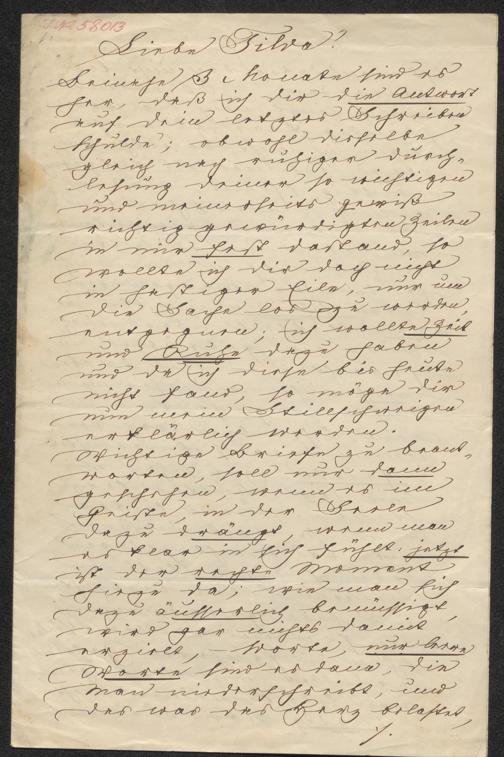 I.N. 58013
Liebe Tilda!
Beinahe 3 Monate sind es
her, daß ich dir die Antwort
auf dein letztes Schreiben
schulde; obwohl dieselbe
gleich nach ruhiger Durch-
lesung deiner so wichtigen
und meinerseits gewiß
richtig gewürdigten Zeilen
in mir fest dastand, so
wollte ich dir doch nicht
in hastiger Eile, nur um
die Sache los zu werden,
entgegnen; ich wollte Zeit
und Ruhe dazu haben
und da ich diese bis heute
nicht fand, so möge dir
nun mein Stillschweigen
erklärlich werden.
Wichtige Briefe zu beant-
worten, soll nur dann
geschehen, wenn es im
Geiste, in der Seele
dazu drängt, wenn man
es klar in sich fühlt: jetzt
ist der rechte Moment
hiezu da; wie man sich
dazu äusserlich bemüssigt,
wird gar nichts damit
erzielt, – Worte, nur leere
Worte sind es dann, die
man niederschreibt, und
das was das Herz belastet,
./.